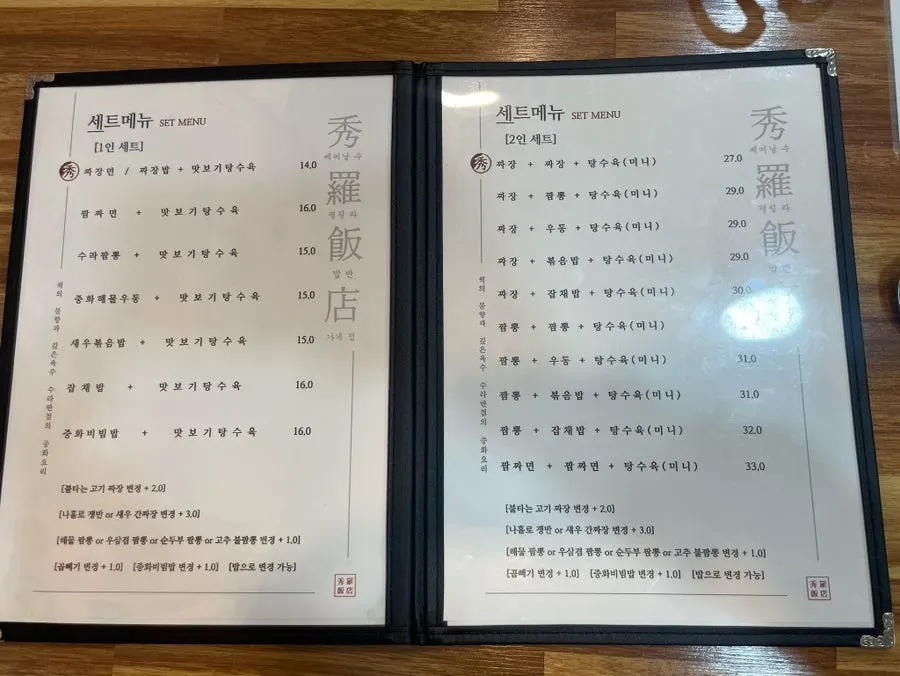 세트메뉴 SET MENU
[1인 세트]
秀 짜장면 / 짜장밥 + 맛보기탕수육 14.0
짬짜면 + 맛보기탕수육 16.0
수라짬뽕 + 맛보기탕수육 15.0
중화해물우동 + 맛보기탕수육 15.0
새우볶음밥 + 맛보기탕수육 15.0
잡채밥 + 맛보기탕수육 16.0
중화비빔밥 + 맛보기탕수육 16.0
[불타는 고기 짜장 변경 + 2.0]
[나홀로 쟁반 or 새우 간짜장 변경 + 3.0]
[해물 짬뽕 or 우삼겹 짬뽕 or 순두부 짬뽕 or 고추 불짬뽕 변경 + 1.0]
[곱빼기 변경 + 1.0] [중화비빔밥 변경 + 1.0] [밥으로 변경 가능]
웍의 불향과 깊은육수 수라반점의 중화요리
秀
빼어날 수
羅
펼칠 라
飯
밥 반
店
가게 점
秀羅
飯店
세트메뉴 SET MENU
[2인 세트]
秀 짜장 + 짜장 + 탕수육(미니) 27.0
짜장 + 짬뽕 + 탕수육(미니) 29.0
짜장 + 우동 + 탕수육(미니) 29.0
짜장 + 볶음밥 + 탕수육(미니) 29.0
짜장 + 잡채밥 + 탕수육(미니) 30.0
짬뽕 + 짬뽕 + 탕수육(미니)
짬뽕 + 우동 + 탕수육(미니) 31.0
짬뽕 + 볶음밥 + 탕수육(미니) 31.0
짬뽕 + 잡채밥 + 탕수육(미니) 32.0
짬짜면 + 짬짜면 + 탕수육(미니) 33.0
[불타는 고기 짜장 변경 + 2.0]
[나홀로 쟁반 or 새우 간짜장 변경 + 3.0]
[해물 짬뽕 or 우삼겹 짬뽕 or 순두부 짬뽕 or 고추 불짬뽕 변경 + 1.0]
[곱빼기 변경 + 1.0] [중화비빔밥 변경 + 1.0] [밥으로 변경 가능]
웍의 불향과 깊은육수 수라반점의 중화요리
秀
빼어날 수
羅
펼칠 라
飯
밥 반
秀羅
飯店